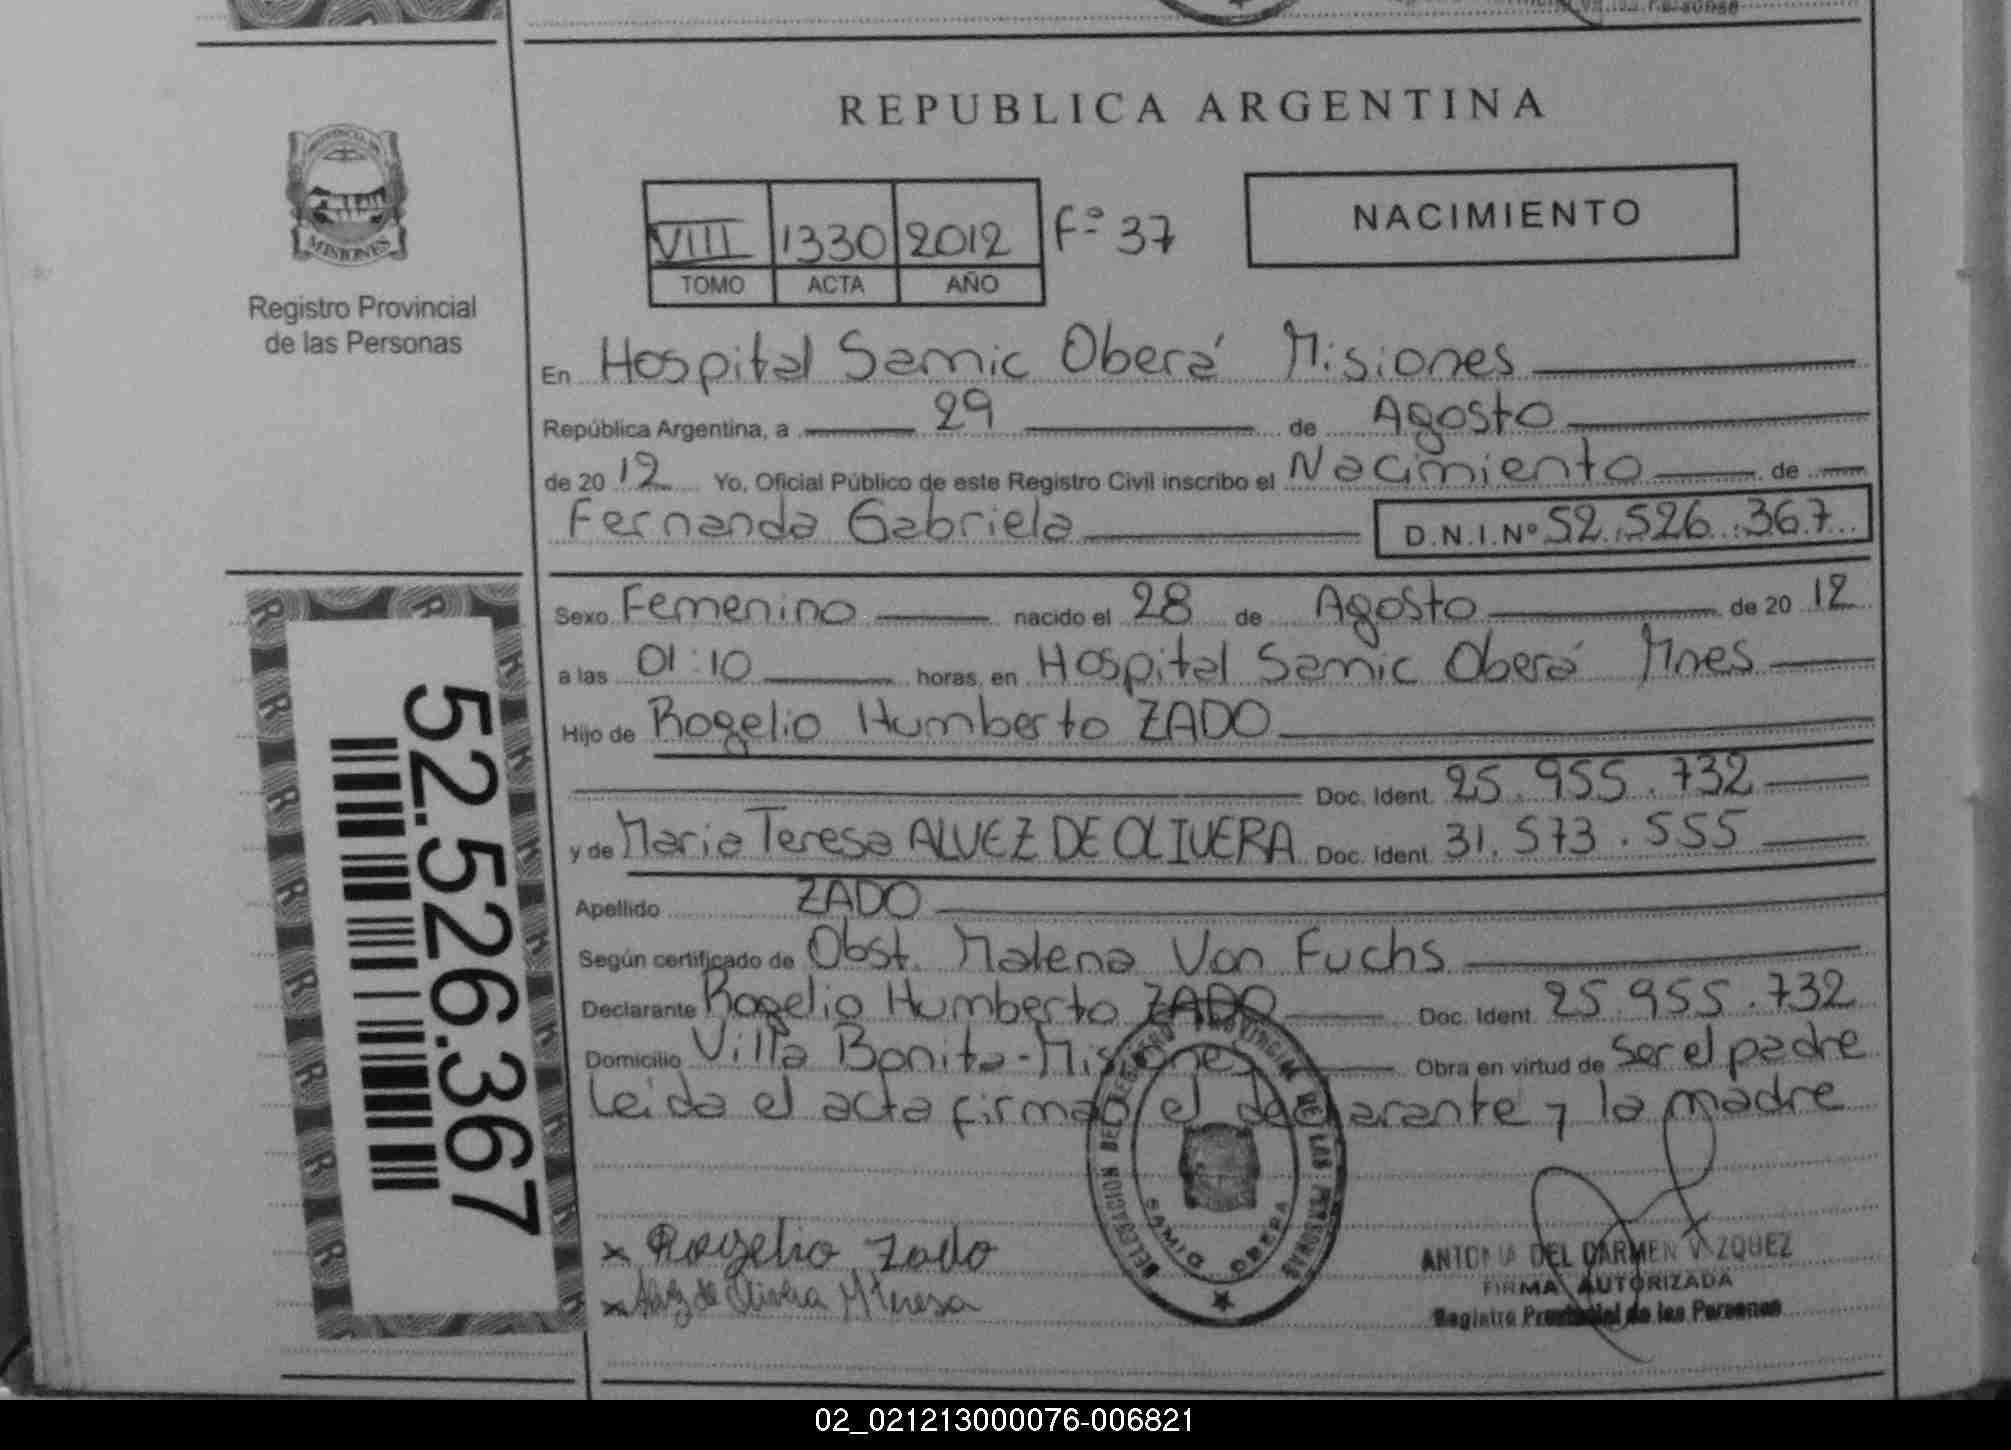 REPUBLICA ARGENTINA
PROVINCIA DE
MISIONES
Registro Provincial
de las Personas
VIII 1330 2012 Fº 37
TOMO ACTA AÑO
NACIMIENTO
En Hospital Samic Oberá Misiones
República Argentina, a 29 de Agosto
de 2012 Yo, Oficial Público de este Registro Civil inscribo el Nacimiento de
Fernanda Gabriela D.N.I.Nº 52.526.367
Sexo Femenino nacido el 28 de Agosto de 2012
a las 01:10 horas, en Hospital Samic Oberá Mnes
Hijo de Rogelio Humberto ZADO
Doc. Ident. 25.955.732
y de Maria Teresa ALVEZ DE OLIVERA Doc. Ident. 31.573.555
Apellido ZADO
Según certificado de Obst. Malena Von Fuchs
Declarante Rogelio Humberto ZADO Doc. Ident. 25.955.732
Domicilio Villa Bonita-Misiones Obra en virtud de Ser el padre
Leida el acta firman el declarante y la madre
52.526.367
x Rogelio Zado
x Alvz de Olivera M Teresa
DELEGACION DEL REGISTRO PROVINCIAL DE LAS PERSONAS
SAMIC OBERA
ANTONIA DEL CARMEN VAZQUEZ
FIRMA AUTORIZADA
Registro Provincial de las Personas
02_021213000076-006821